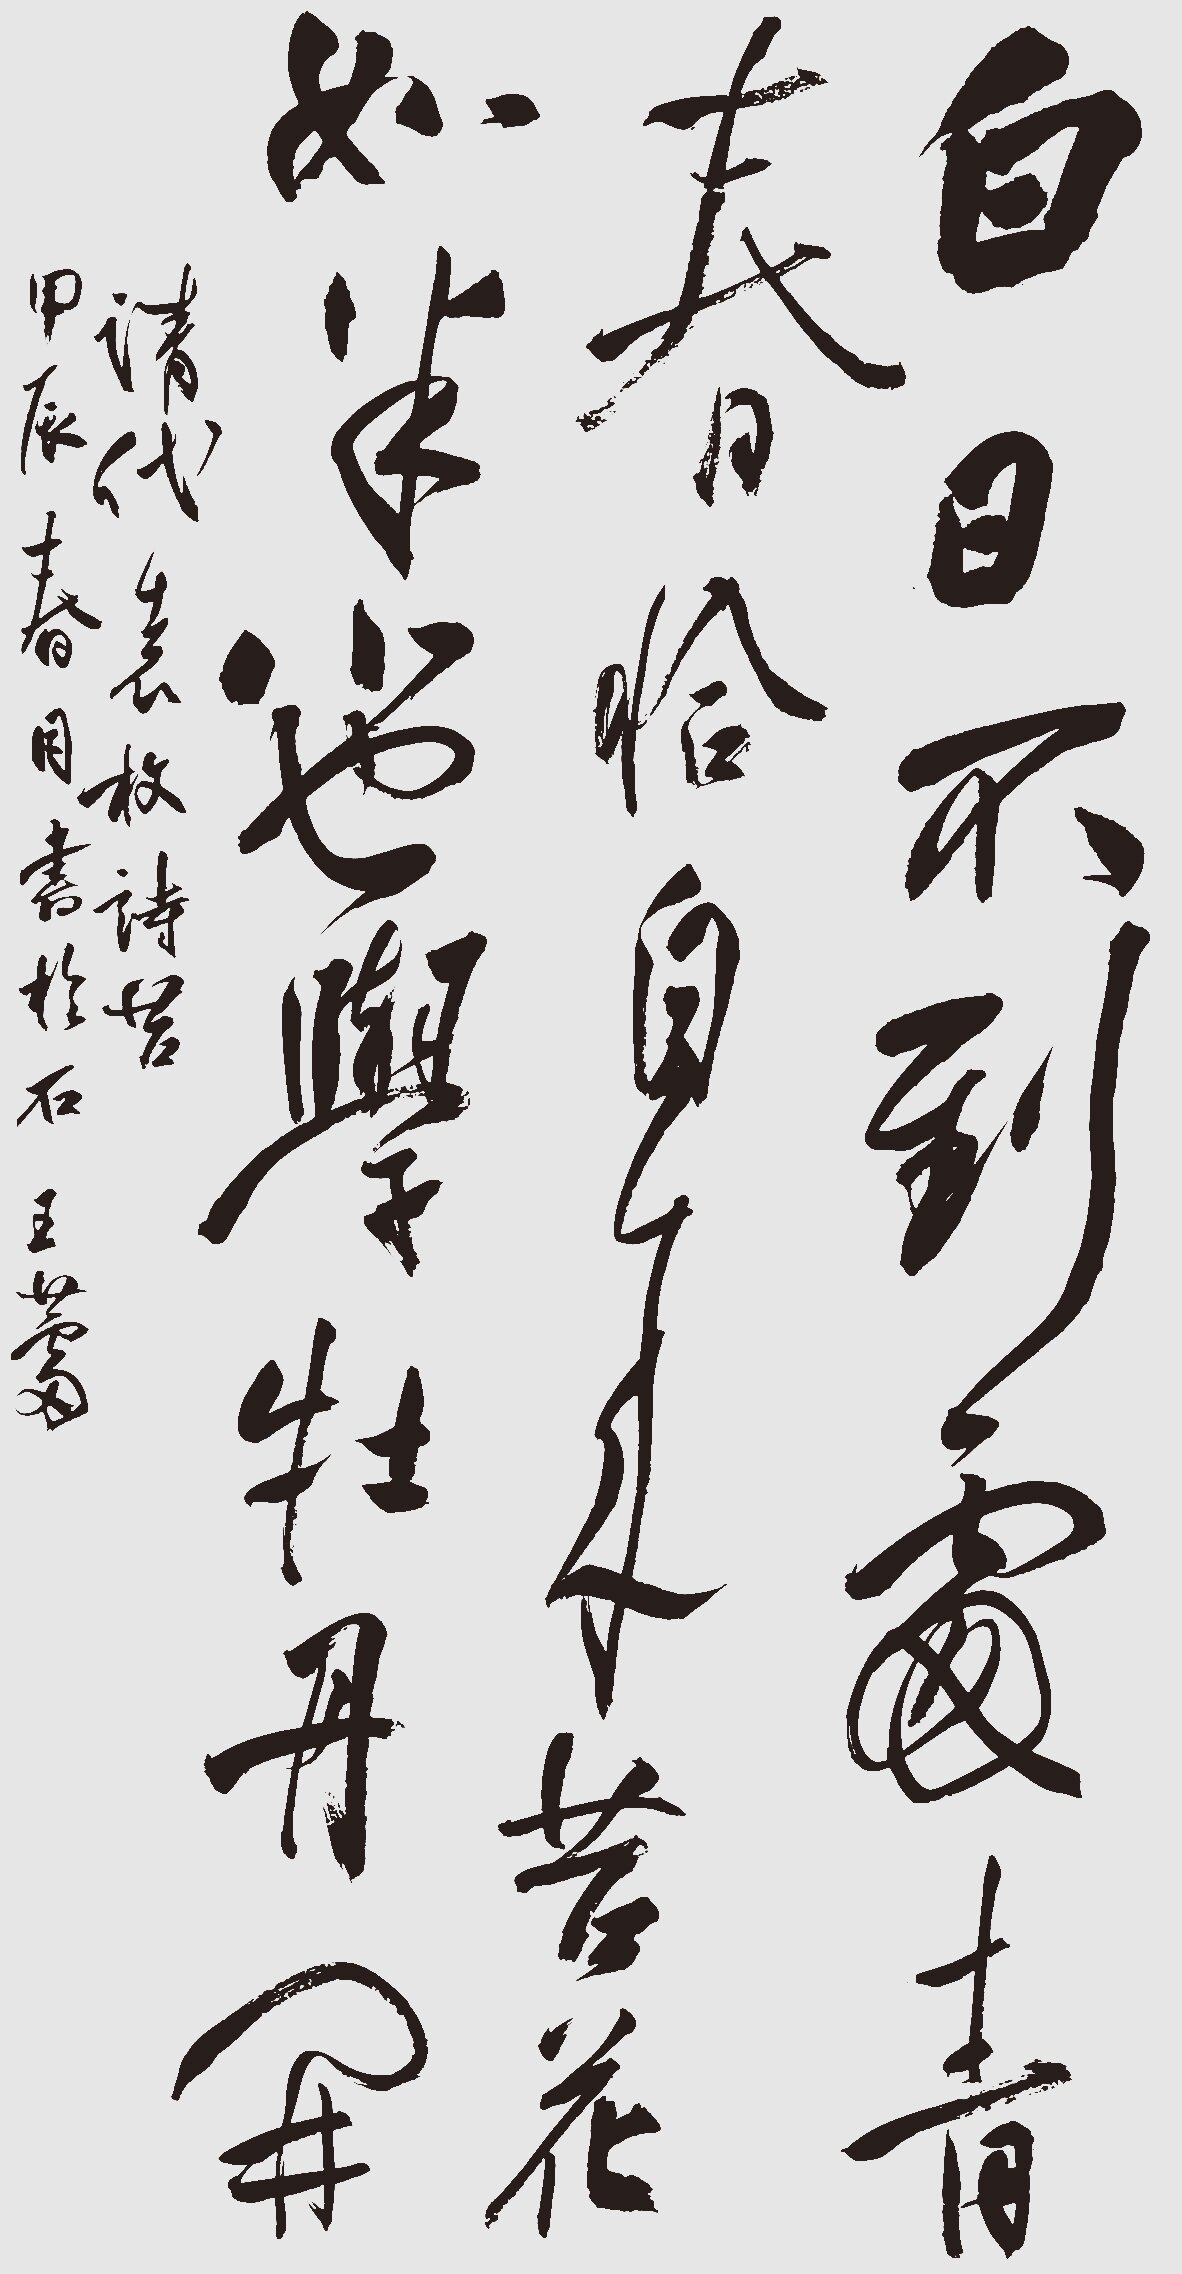 白日不到處青
春日恰自來苔花
如米也學牡丹開
清代袁枚詩苔
甲辰春月書於石 王蕾